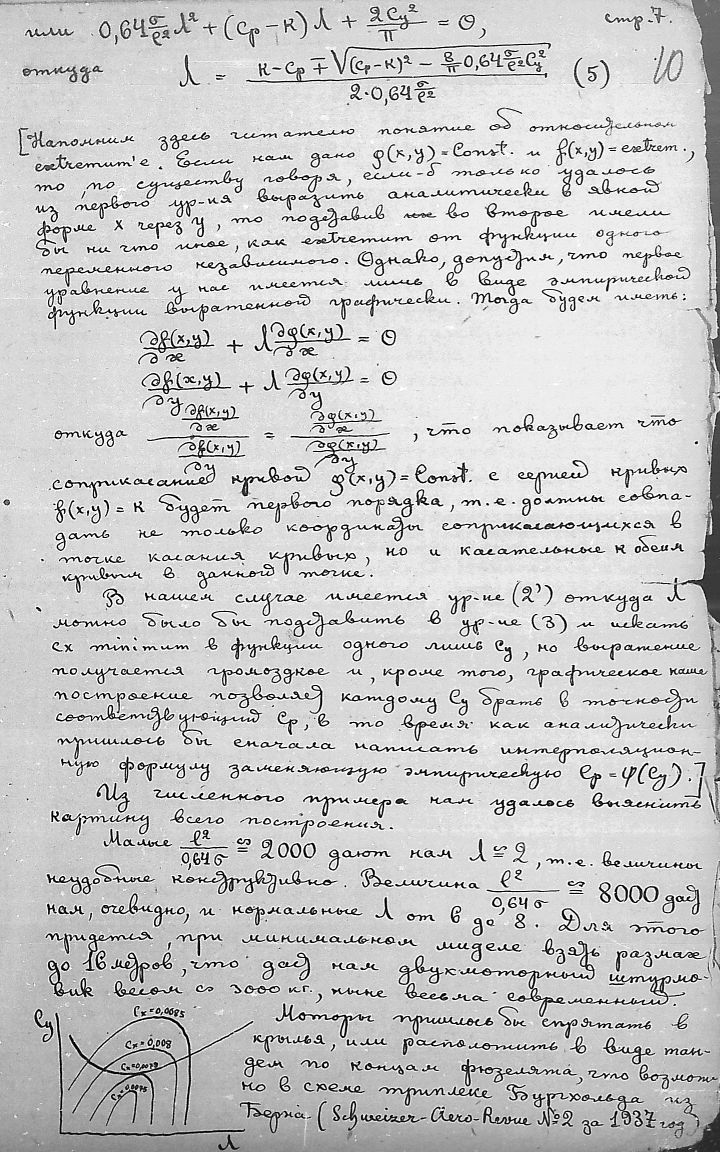 или 0,64 σ/ℓ² Λ² + (Cp-К) Λ + 2Cy²/π = 0, стр. 7.
откуда Λ = (К-Cp ∓ √((Cp-К)² - 8/π 0,64 σ/ℓ² Cy²)) / (2·0,64 σ/ℓ²) (5) 10
[Напомним здесь читателю понятие об относительном
extremum'е. Если нам дано φ(x,y)=Const. и f(x,y)=extrem.,
то, по существу говоря, если-б только удалось
из первого ур-ия выразить аналитически в явной
форме x через y, то подставив во второе имели
бы ни что иное, как extremum от функции одного
переменного независимого. Однако, допустим, что первое
уравнение у нас имеется лишь в виде эмпирической
функции выраженной графически. Тогда будем иметь:
∂f(x,y)/∂x + Λ ∂φ(x,y)/∂x = 0
∂f(x,y)/∂y + Λ ∂φ(x,y)/∂y = 0
откуда (∂f(x,y)/∂x)/(∂f(x,y)/∂y) = (∂φ(x,y)/∂x)/(∂φ(x,y)/∂y), что показывает что
соприкасание кривой φ(x,y)=Const. с серией кривых
f(x,y)=К будет первого порядка, т.е. должны совпа-
дать не только координаты соприкасающихся в
точке касания кривых, но и касательные к обеим
кривым в данной точке.
В нашем случае имеется ур-ие (2') откуда Λ
можно было бы подставить в ур-ие (3) и искать
Cx minimum в функции одного лишь Cy, но выражение
получается громоздкое и, кроме того, графическое наше
построение позволяет каждому Cy брать в точности
соответствующий Cp, в то время как аналитически
пришлось бы сначала написать интерполяцион-
ную формулу заменяющую эмпирическую Cp=φ(Cy).]
Из численного примера нам удалось выяснить
картину всего построения.
Малые ℓ²/0,64σ ≌ 2000 дают нам Λ ≌ 2, т.е. величины
неудобные конструктивно. Величина ℓ²/0,64σ ≌ 8000 даст
нам, очевидно, и нормальные Λ от 6 до 8. Для этого
придется, при минимальном миделе взять размах
до 16 метров, что даст нам двухмоторный штурмо-
вик весом ∽ 3000 кг., ныне весьма современный.
Моторы пришлось бы спрятать в
крылья, или расположить в виде тан-
дем по концам фюзеляжа, что возмож-
но в схеме триплеке Бургхольда из
Берна (Schweizer-Aero-Revue №2 за 1937 год)
Cy
Cx=0,0085
Cx=0,008
Cx=0,0079
Cx=0,0075
Λ